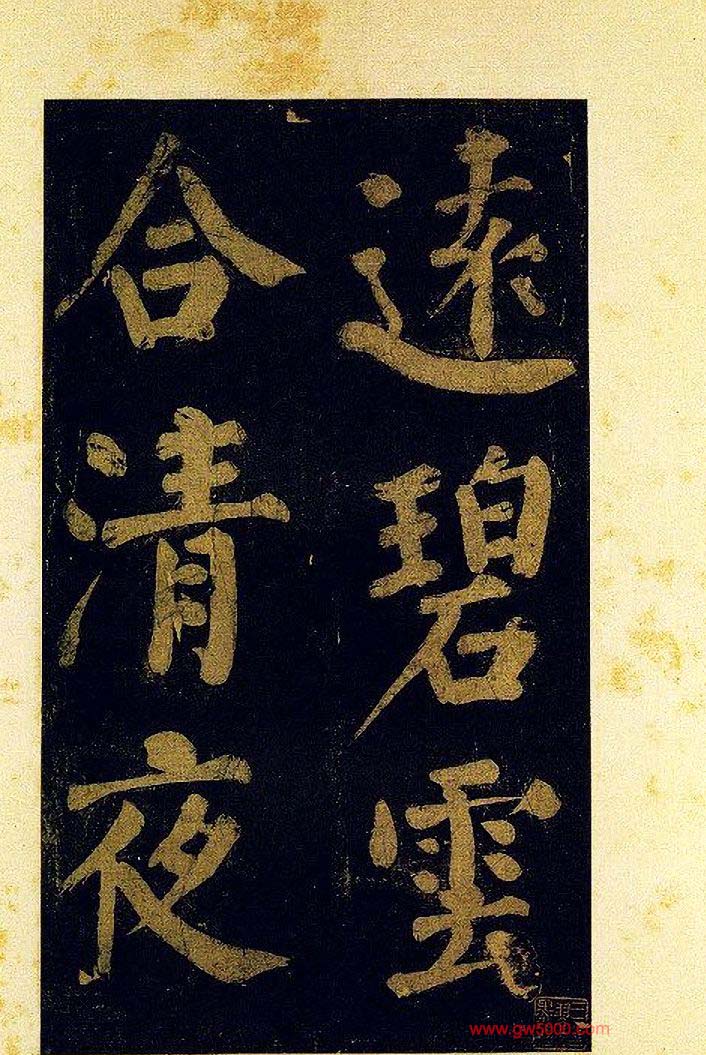 遠碧雲
合清夜
www.gw5000.com